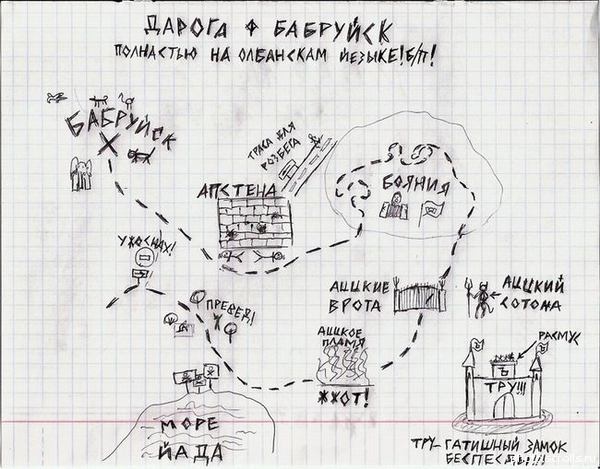 ДАРОГА Ф БАБРУЙСК
ПОЛНАСТЬЮ НА ОЛБАНСКАМ ЙЕЗЫКЕ! Б/П!
БАБРУЙСК
ТРАСА ДЛЯ
РОЗБЕГА
АПСТЕНА
БОЯНИЯ
УЖОСНАХ!
ПРЕВЕД!
АЦЦКИЕ
ВРОТА
АЦЦКИЙ
СОТОНА
АЦЦКОЕ
ПЛАМЯ
ЖЖОТ!
РАСМУС
Ъ
ТРУ!!!
МОРЕ
ЙАДА
ТРУ-ГАТИШНЫЙ ЗАМОК